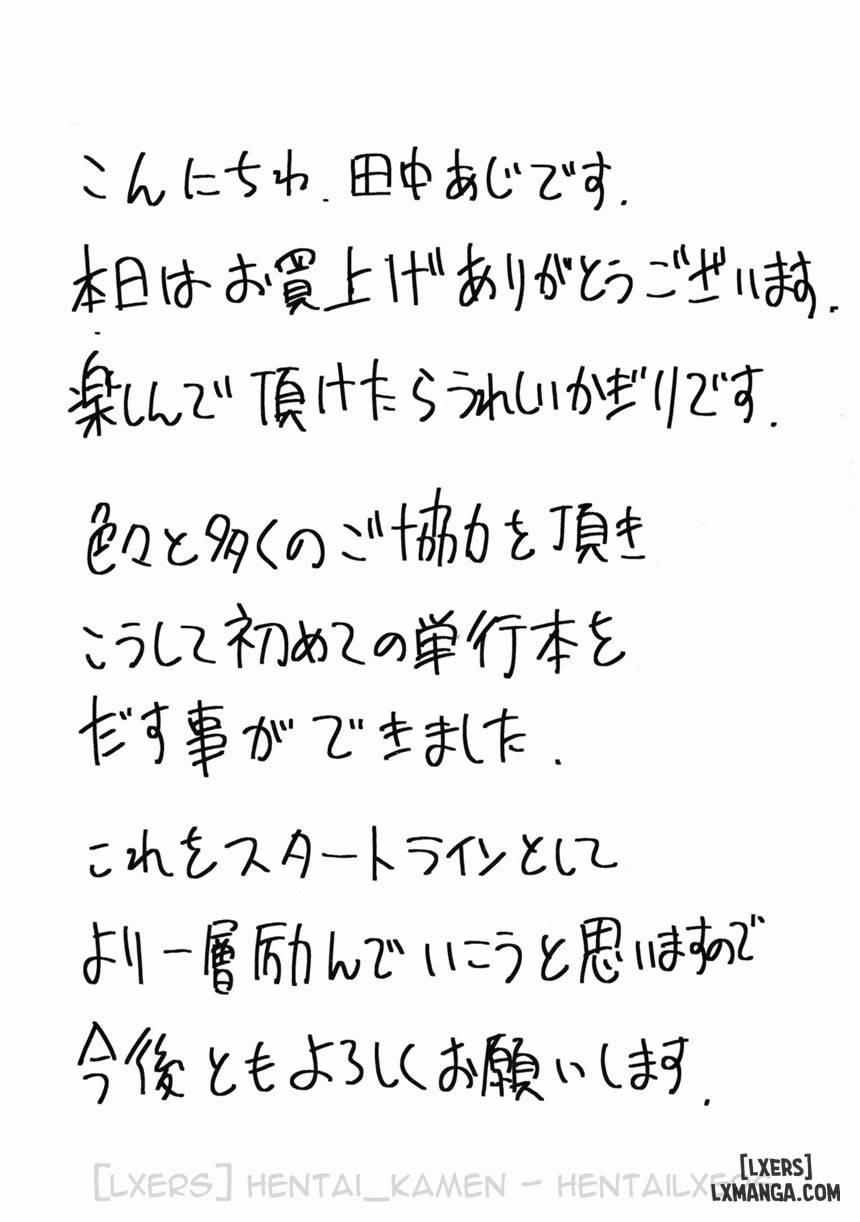 こんにちわ.田中あじです.
本日はお買上げありがとうございます.
楽しんで頂けたらうれしいかぎりです.
色々と多くのご協力を頂き
こうして初めての単行本を
だす事ができました.
これをスタートラインとして
より一層励んでいこうと思いますので
今後ともよろしくお願いします.
[LXERS] HENTAI_KAMEN - HENTAILXERS
[LXERS]
LXMANGA.COM